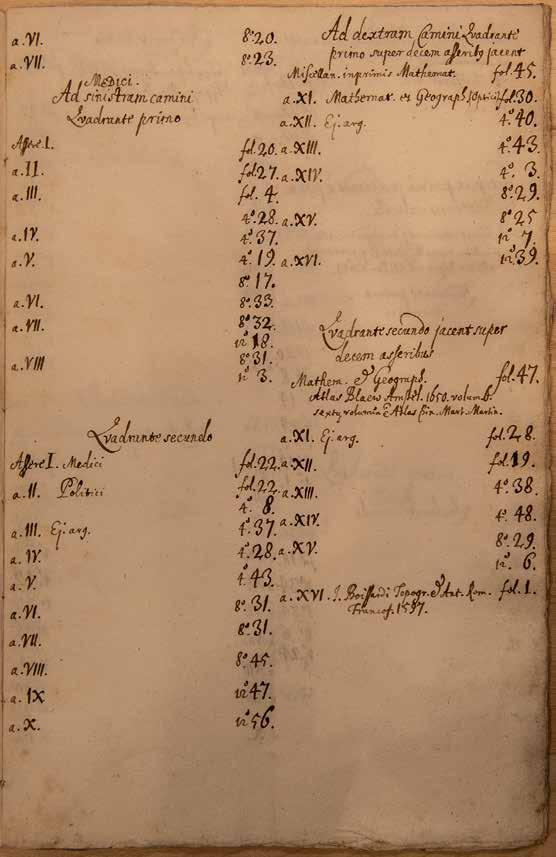 a. VI. 8º 20.
a. VII. 8º 23.
Medici.
Ad sinistram camini
Qvadrante primo
Assere I. fol. 20.
a. II. fol. 27.
a. III. fol. 4.
4º 28.
a. IV. 4º 37.
a. V. 4º 19.
8º 17.
a. VI. 8º 33.
a. VII. 8º 32.
12º 18.
a. VIII 8º 31.
12º 3.
Qvadrante secundo
Assere I. Medici fol. 22.
a. II. Politici fol. 22.
4º 8.
a. III. Ej. arg. 4º 37.
a. IV. 4º 28.
a. V. 4º 43.
a. VI. 8º 31.
a. VII. 8º 31.
a. VIII. 8º 45.
a. IX 12º 47.
a. X. 12º 56.
Ad dextram Camini Qvadrante
primo super decem asseribg jacent
Miscellan. inprimis Mathemat. fol. 45.
a. XI. Mathemat. et Geograph. (Optici) fol. 30.
a. XII. Ej. arg. 4º 40.
a. XIII. 4º 43.
a. XIV. 4º 3.
8º 29.
a. XV. 8º 25
12º 7.
a. XVI. 12º 39.
Qvadrante secundo jacent super
decem asseribus
Mathem. & Geograph. fol. 47.
Atlas Blaew Amstel. 1650. volum 6.
sextg volumin è Atlas Sin. Mart. Martin.
a. XI. Ej. arg. fol. 28.
a. XII. fol. 19.
a. XIII. 4º 38.
a. XIV. 4º 48.
a. XV. 8º 29.
12º 6.
a. XVI. J. Boissardi Topogr. & Ant. Rom. fol. 1.
Francof. 1597.